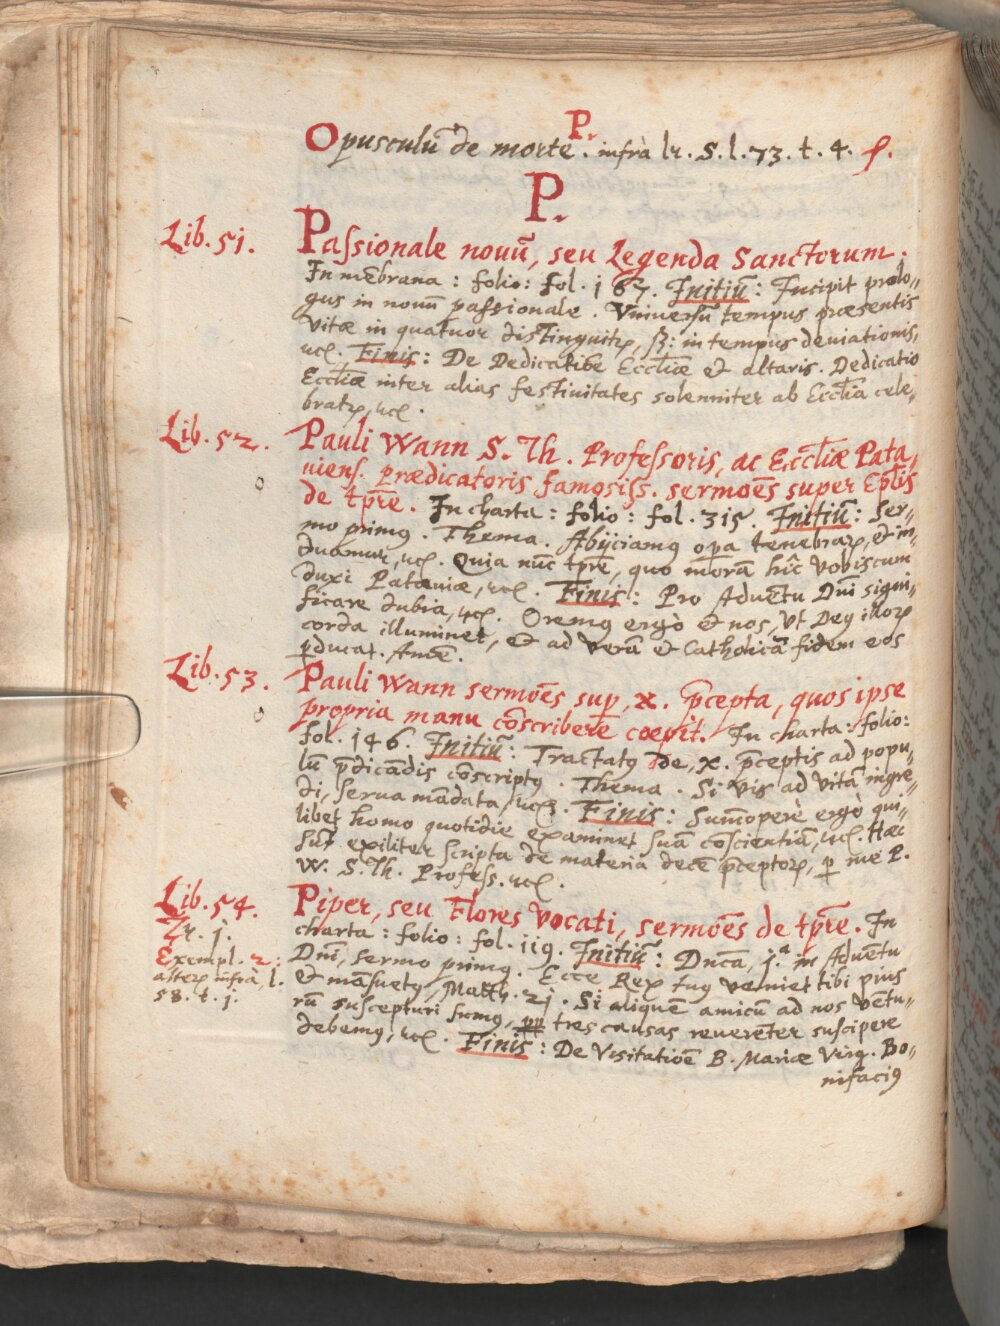 P.
Opusculũ de morte. infrà lr. S. l. 73. t. 4. f.
P.
Lib. 51. Passionale nouũ, seu Legenda Sanctorum.
In mẽbrana: folio: fol. 167. Initiũ: Incipit prolo„
gus in nouũ passionale. Vniuersũ tempus præsentis
vitæ in quatuor distinguitr, ß: in tempus deuiationis,
ɾcꝭ. Finis: De Dedicatiõe Eccliæ et altaris. Dedicatio
Eccliæ inter alias festiuitates solenniter ab Ecclia cele„
bratr, ɾcꝭ.
Lib. 52. Pauli Wann S. Th. Professoris, ac Eccliæ Pata„
uiens. prædicatoris famosiss. sermoẽs super Eplis
de tp̃re. In charta: folio: fol. 315. Initiũ: Ser„
mo primꝰ. Thema. Abijciamꝰ opa tenebraꝝ, et in„
duamur, ɾcꝭ. Quia nũc tp̃re, quo morã hîc vobiscum
duxi Patauiæ, ɾcꝭ. Finis: Pro Aduẽtu Dñi signi„
ficare dubia, ɾcꝭ. Oremꝰ ergò et nos, vt Deꝰ illoꝝ
corda illuminet, et ad verã et Catholicã fidem eos
ꝑducat. Amẽ.
Lib. 53. Pauli Wann sermoẽs sup. x. p̃cepta, quos ipse
propria manu cõscribere coepit. In charta: folio:
fol. 146. Initiũ: Tractatꝰ de. x. p̃ceptis ad popu„
lũ p̃dicãdis cõscriptꝰ. Thema. Si vis ad vitã ingre„
di, serua mãdata, ɾcꝭ. Finis: Sum̃operè ergò qui„
libet homo quotidie examinet suã cõscientiã, ɾcꝭ. Hæc
sũt exiliter scripta de materia decẽ p̃ceptoꝝ, ꝑ me P.
W. S. Th. Profess. ɾcꝭ.
Lib. 54. Piper, seu Flores vocati, sermoẽs de tp̃re. In
Zr. j.
Exempl. 2:
alteꝝ infrà, l.
58. t. j.
charta: folio: fol. 119. Initiũ: Dñca, j.ª in Aduẽtu
Dñi, sermo primꝰ. Ecce Rex tuꝰ veniet tibi pius
et mãsuetꝰ, Matth. 21. Si aliquẽ amicũ ad nos vẽtu„
rũ suscepturi sumꝰ, ꝓpt tres causas reuerẽter suscipere
debemꝰ, ɾcꝭ. Finis: De Visitatiõe B. Mariæ Virg. Bo„
nifaciꝰ